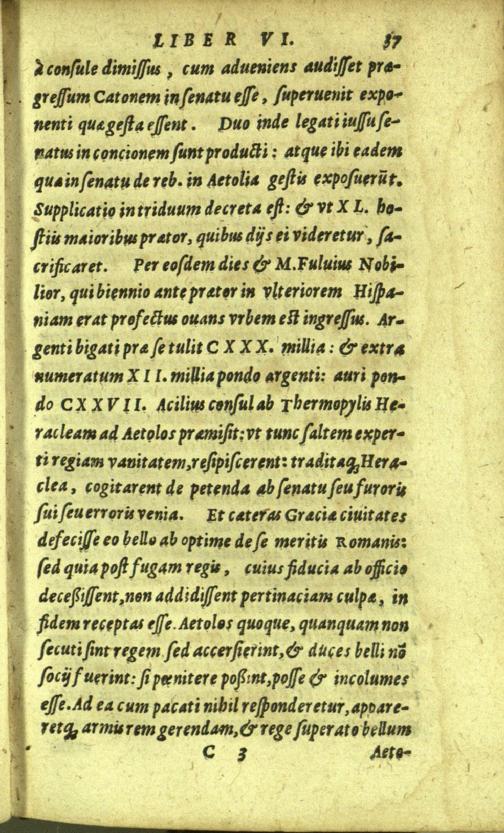 LIBER VI. 37
à conſule dimiſſus, cum adueniens audiſſet præ-
greſſum Catonem in ſenatu eſſe, ſuperuenit expo-
nenti quæ geſta eſſent. Duo inde legati iuſſu ſe-
natus in concionem ſunt producti: atque ibi eadem
quæ in ſenatu de reb. in Aetolia geſtis expoſuerūt.
Supplicatio in triduum decreta eſt: & vt XL. ho-
ſtiis maioribus prætor, quibus dijs ei videretur, ſa-
crificaret. Per eoſdem dies & M. Fuluius Nobi-
lior, qui biennio ante prætor in vlteriorem Hiſpa-
niam erat profectus ouans vrbem eſt ingreſſus. Ar-
genti bigati præ ſe tulit CXXX. millia: & extra
numeratum XII. millia pondo argenti: auri pon-
do CXXVII. Acilius conſul ab Thermopylis He-
racleam ad Aetolos præmiſit: vt tunc ſaltem exper-
ti regiam vanitatem, reſipiſcerent: traditaq́; Hera-
clea, cogitarent de petenda ab ſenatu ſeu furoris
ſui ſeu erroris venia. Et cæteras Græciæ ciuitates
defeciſſe eo bello ab optime de ſe meritis Romanis:
ſed quia poſt fugam regis, cuius fiducia ab officio
deceßiſſent, non addidiſſent pertinaciam culpæ, in
fidem receptas eſſe. Aetolos quoque, quanquam non
ſecuti ſint regem ſed accerſierint, & duces belli nō
ſocij fuerint: ſi pœnitere poßint, poſſe & incolumes
eſſe. Ad ea cum pacati nihil reſponderetur, appare-
retq́; armis rem gerendam, & rege ſuperato bellum
C 3 Aeto-